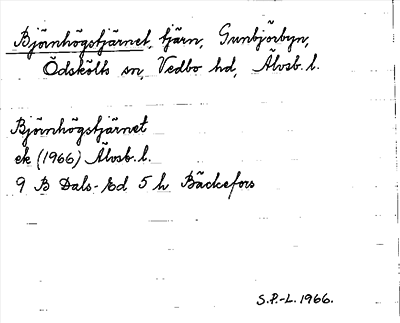 Björnhögstjärnet, tjärn, Gunbjörbyn,
Ödskölts sn, Vedbo hd, Älvsb. l.
Björnhögstjärnet
ek (1966) Älvsb. l.
9 B Dals-Ed 5 h Bäckefors
S.P.-L. 1966.